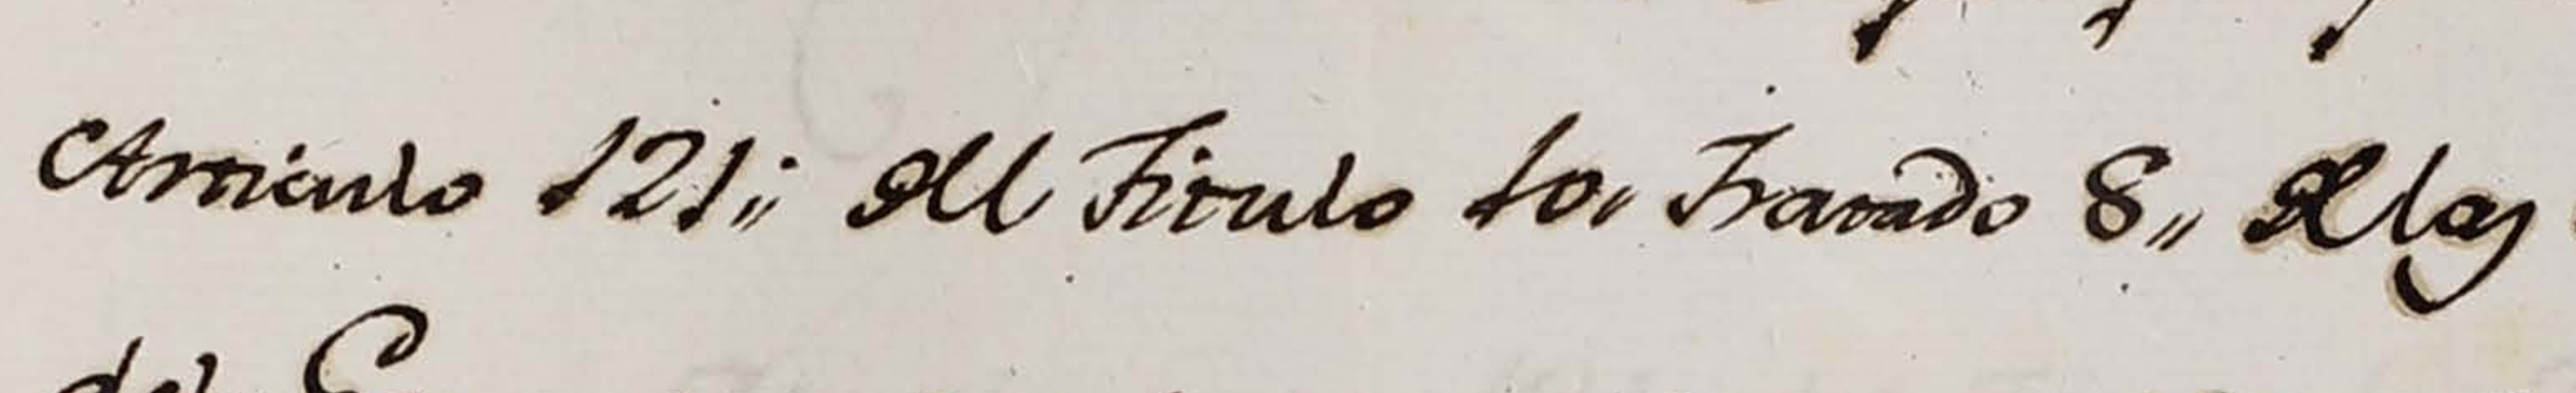 Articulo 121,, del Titulo 10,, Tratado 8,, de las
del